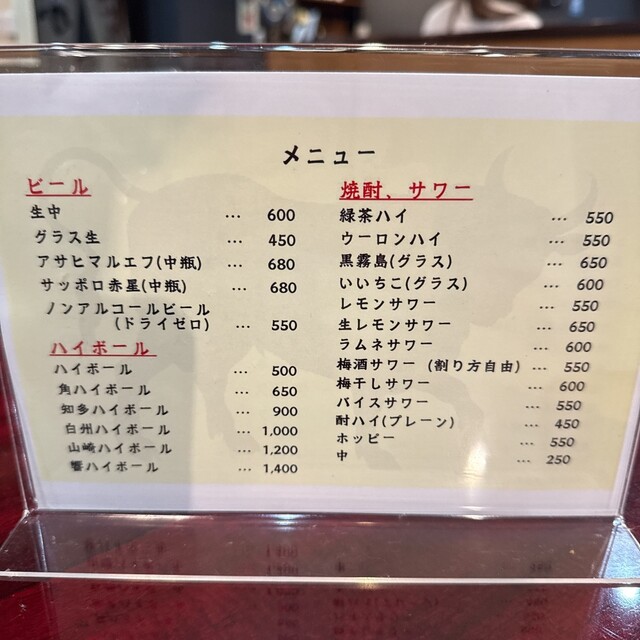 メニュー
ビール
生中 … 600
グラス生 … 450
アサヒマルエフ(中瓶) … 680
サッポロ赤星(中瓶) … 680
ノンアルコールビール
(ドライゼロ) … 550
ハイボール
ハイボール … 500
角ハイボール … 650
知多ハイボール … 900
白州ハイボール … 1,000
山崎ハイボール … 1,200
響ハイボール … 1,400
焼酎、サワー
緑茶ハイ … 550
ウーロンハイ … 550
黒霧島(グラス) … 650
いいちこ(グラス) … 600
レモンサワー … 550
生レモンサワー … 650
ラムネサワー … 600
梅酒サワー (割り方自由) … 550
梅干しサワー … 600
バイスサワー … 550
酎ハイ(プレーン) … 450
ホッピー … 550
中 … 250